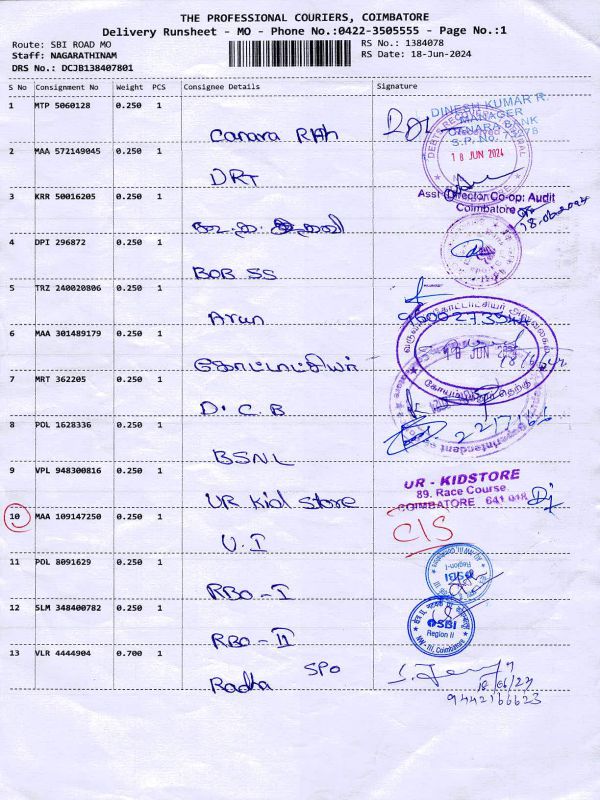 THE PROFESSIONAL COURIERS, COIMBATORE
Delivery Runsheet - MO - Phone No.:0422-3505555 - Page No.:1
Route: SBI ROAD MO
RS No.: 1384078
Staff: NAGARATHINAM
RS Date: 18-Jun-2024
DRS No.: DCJB138407801
S No Consignment No Weight PCS Consignee Details Signature
1 MTP 5060128 0.250 1
Canara
DINESH KUMAR R.
MANAGER
CANARA BANK
S.P. No. 73078
2 MAA 572149045 0.250 1
DRT
18 JUN 2024
3 KRR 50016205 0.250 1
Asst Director Co-op: Audit
Coimbatore
18.06.2024
4 DPI 296872 0.250 1
BOB SS
5 TRZ 240020806 0.250 1
Arun
6 MAA 301489179 0.250 1
கோட்டாட்சியர்
18 JUN
7 MRT 362205 0.250 1
D.C.B
8 POL 1628336 0.250 1
BSNL
9 VPL 948300816 0.250 1
UR Kid Store
UR - KIDSTORE
89. Race Course
COIMBATORE 641 018
10 MAA 109147250 0.250 1
U.I
C/S
11 POL 8091629 0.250 1
RBO-I
SBI
Region-I
12 SLM 348400782 0.250 1
RBO-II
SBI
Region II
13 VLR 4444904 0.700 1
Radha SPO
18/06/24
9442166623